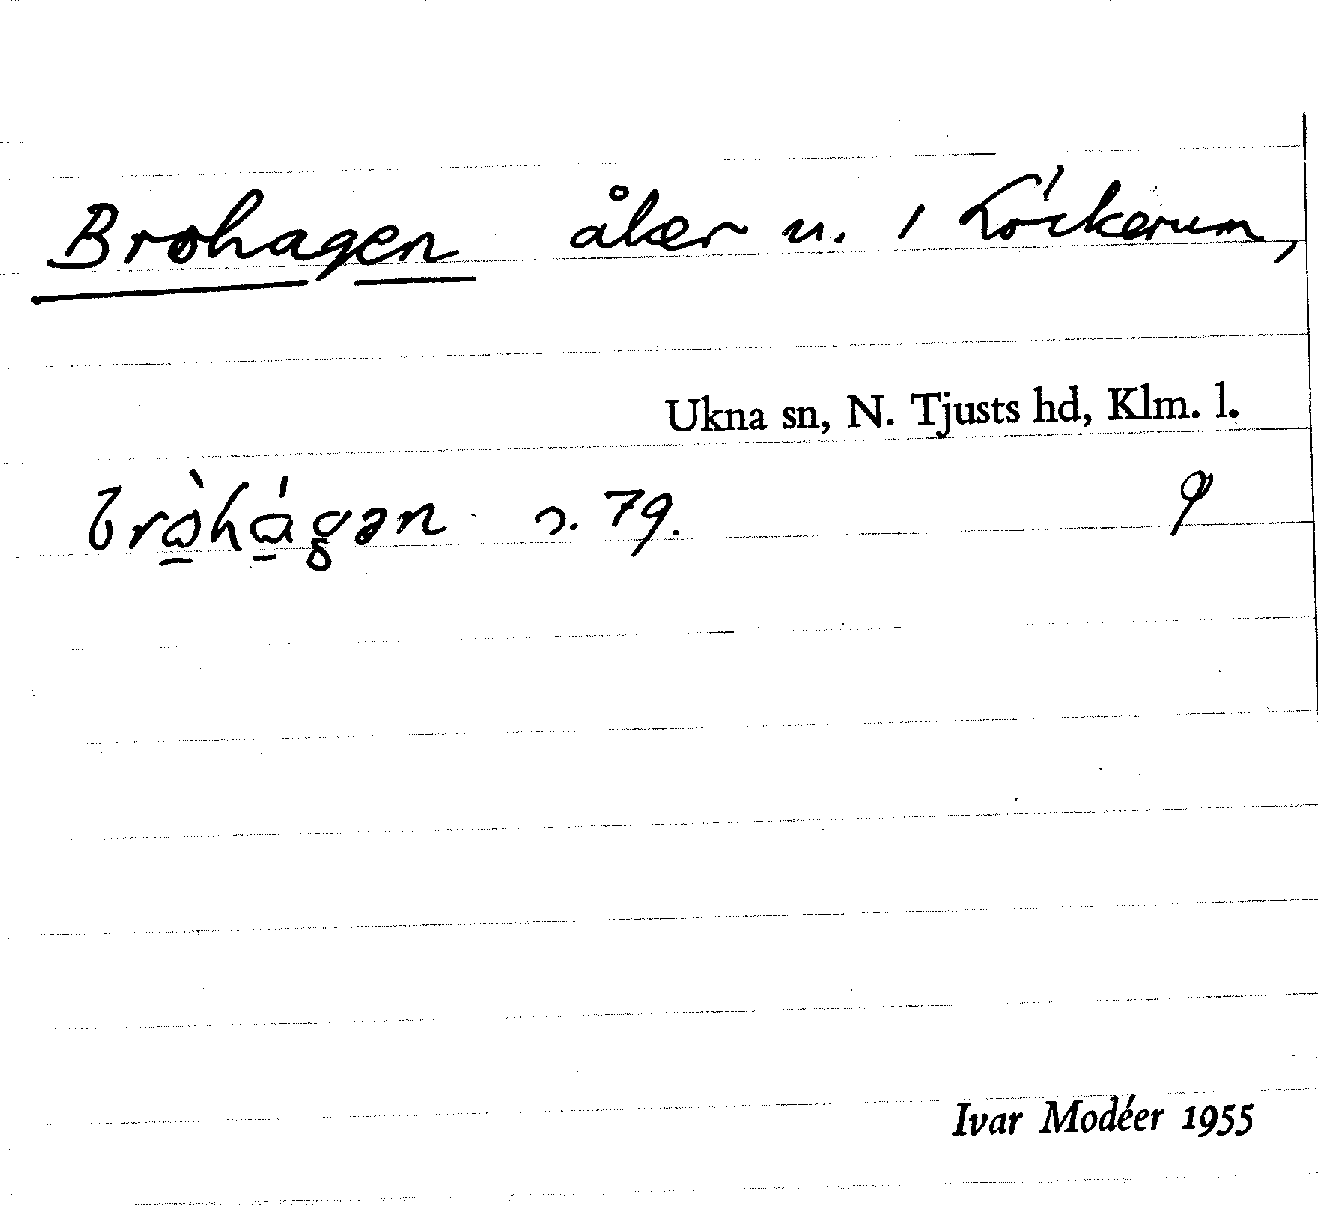 Brohagen åker u. / Löckerum,
Ukna sn, N. Tjusts hd, Klm. l.
bròhágən s. 79.
Ivar Modéer 1955